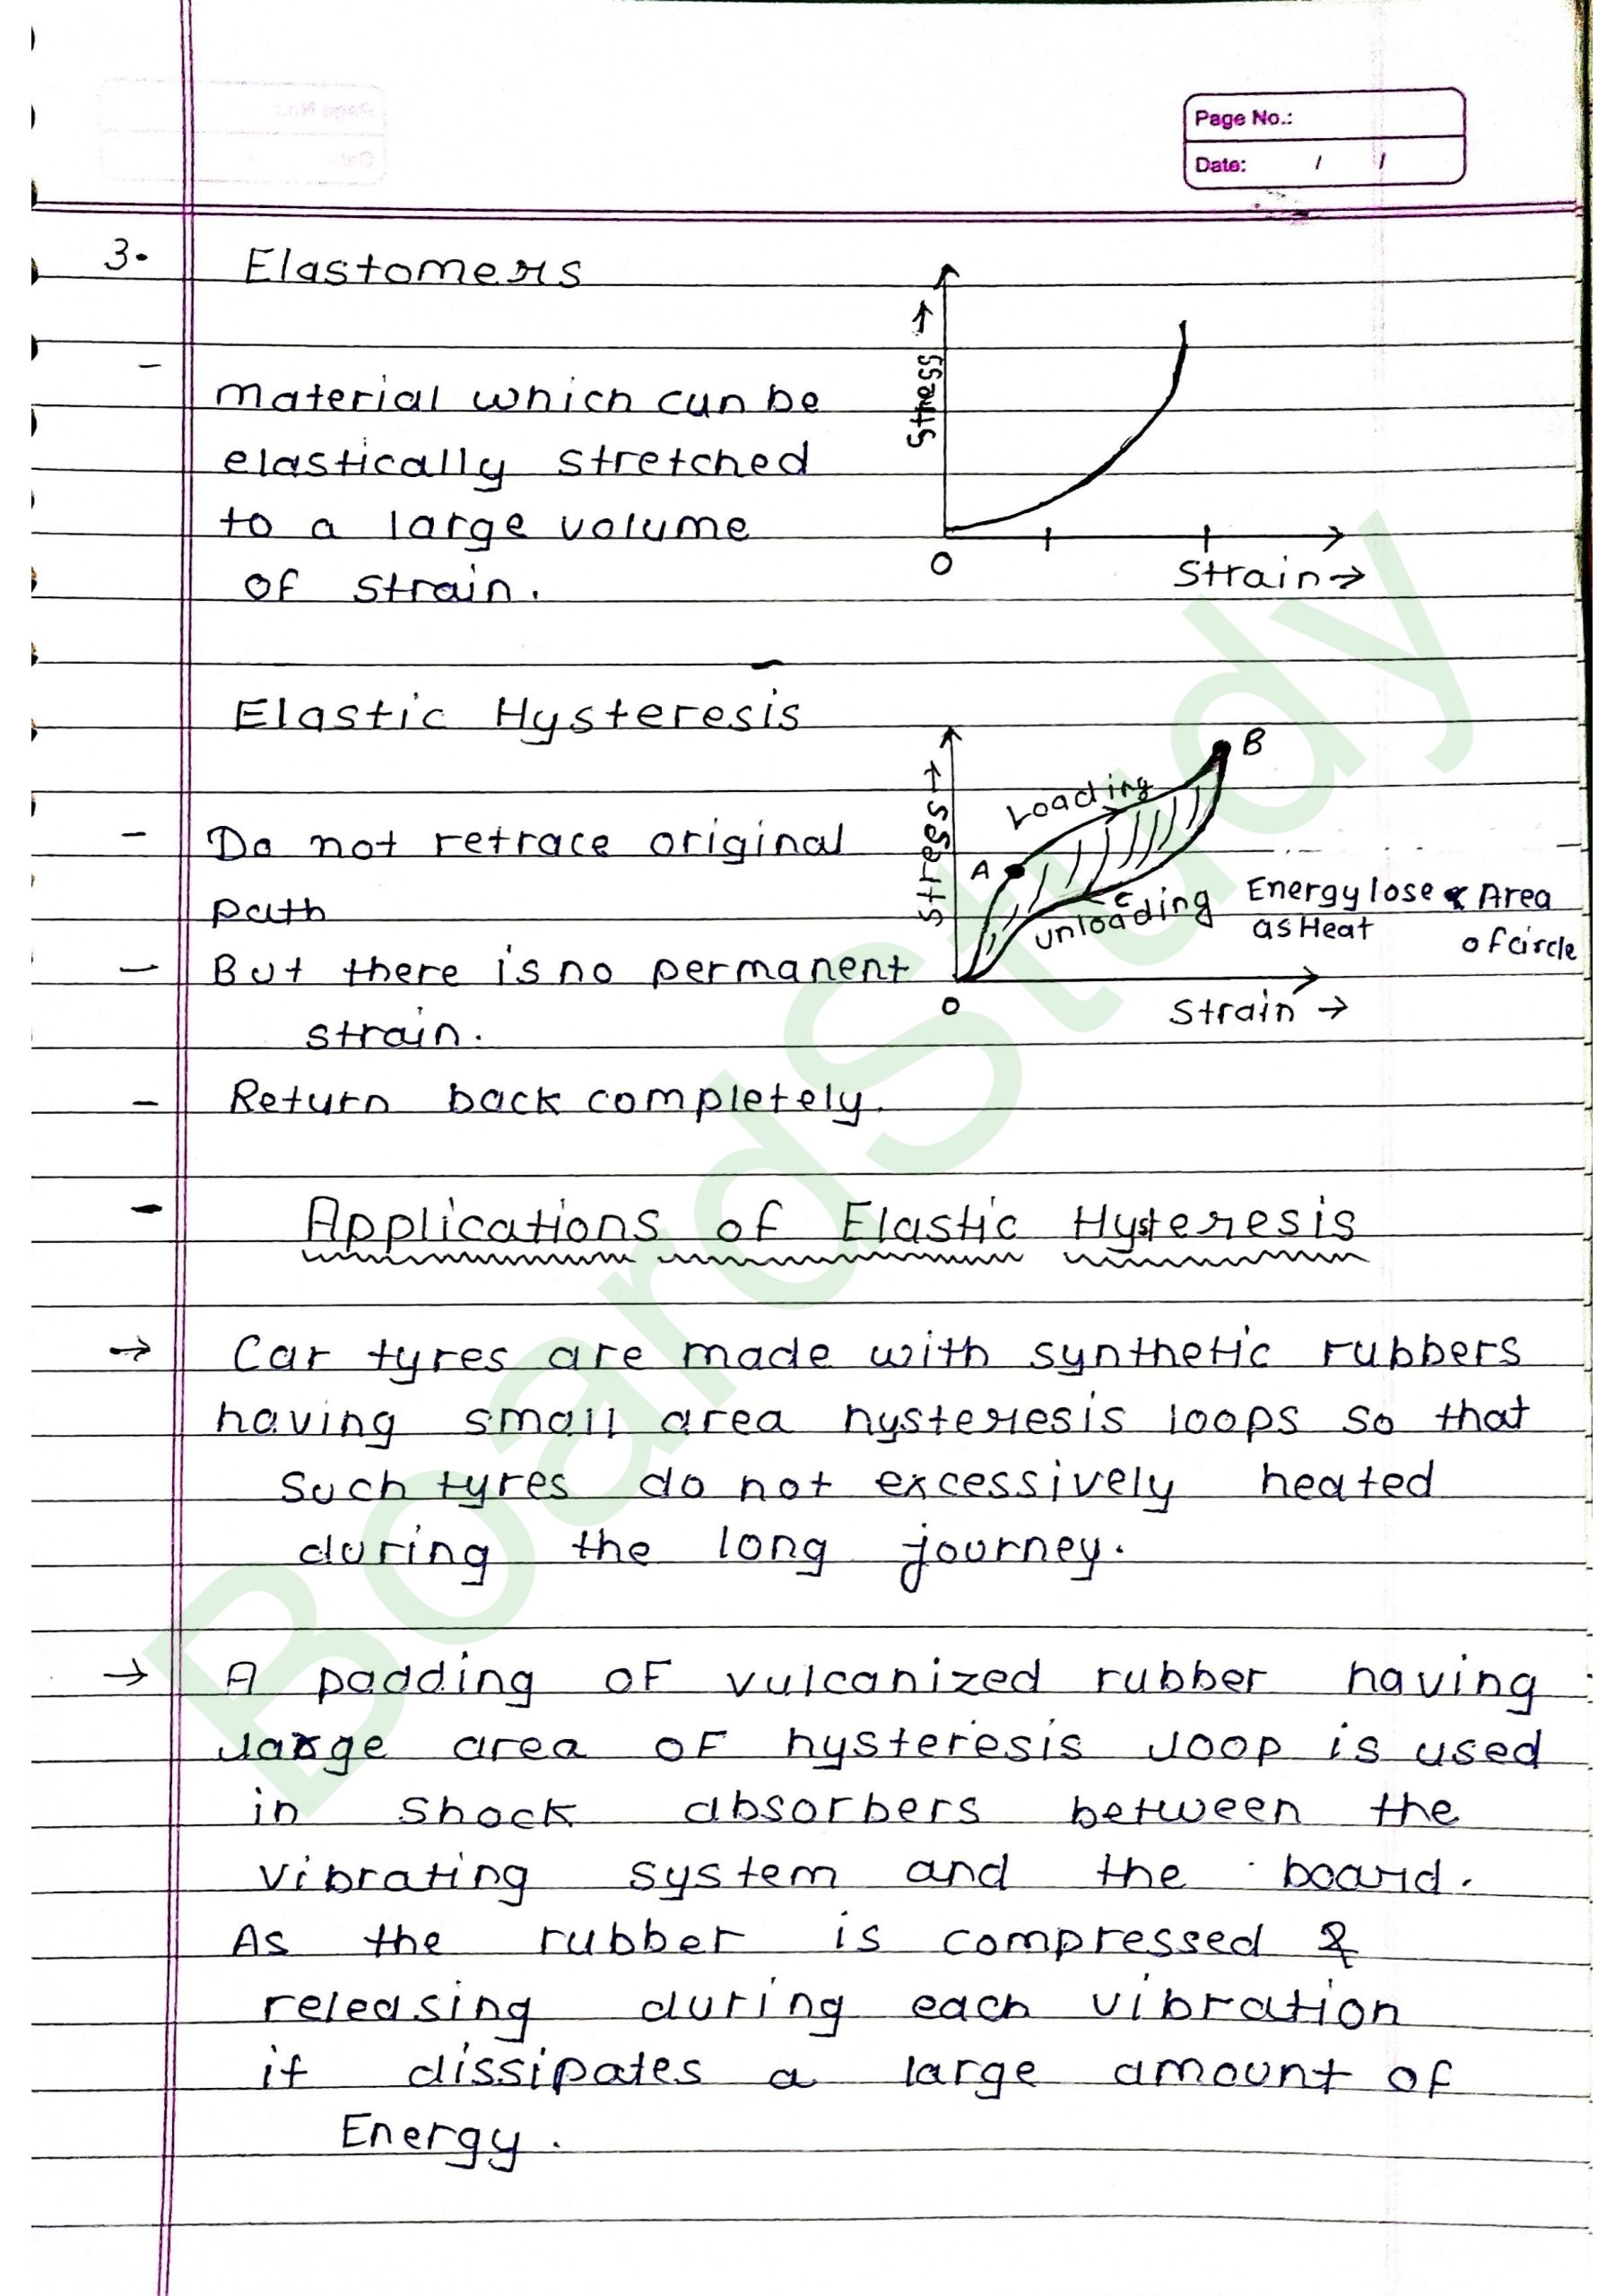 Page No.:
Date: / /
3. Elastomers
Stress →
- material which can be
elastically stretched
to a large volume
of strain.
O
Strain →
Elastic Hysteresis
Stress →
B
Loading
A
C
unloading
Energy lose ∝ Area
as Heat of circle
O
Strain →
- Do not retrace original
path
- But there is no permanent
strain.
- Return back completely.
- Applications of Elastic Hysteresis
→ Car tyres are made with synthetic rubbers
having small area hysteresis loops so that
such tyres do not excessively heated
during the long journey.
→ A padding of vulcanized rubber having
large area of hysteresis loop is used
in shock absorbers between the
vibrating system and the board.
As the rubber is compressed &
releasing during each vibration
it dissipates a large amount of
Energy.
BoardStudy